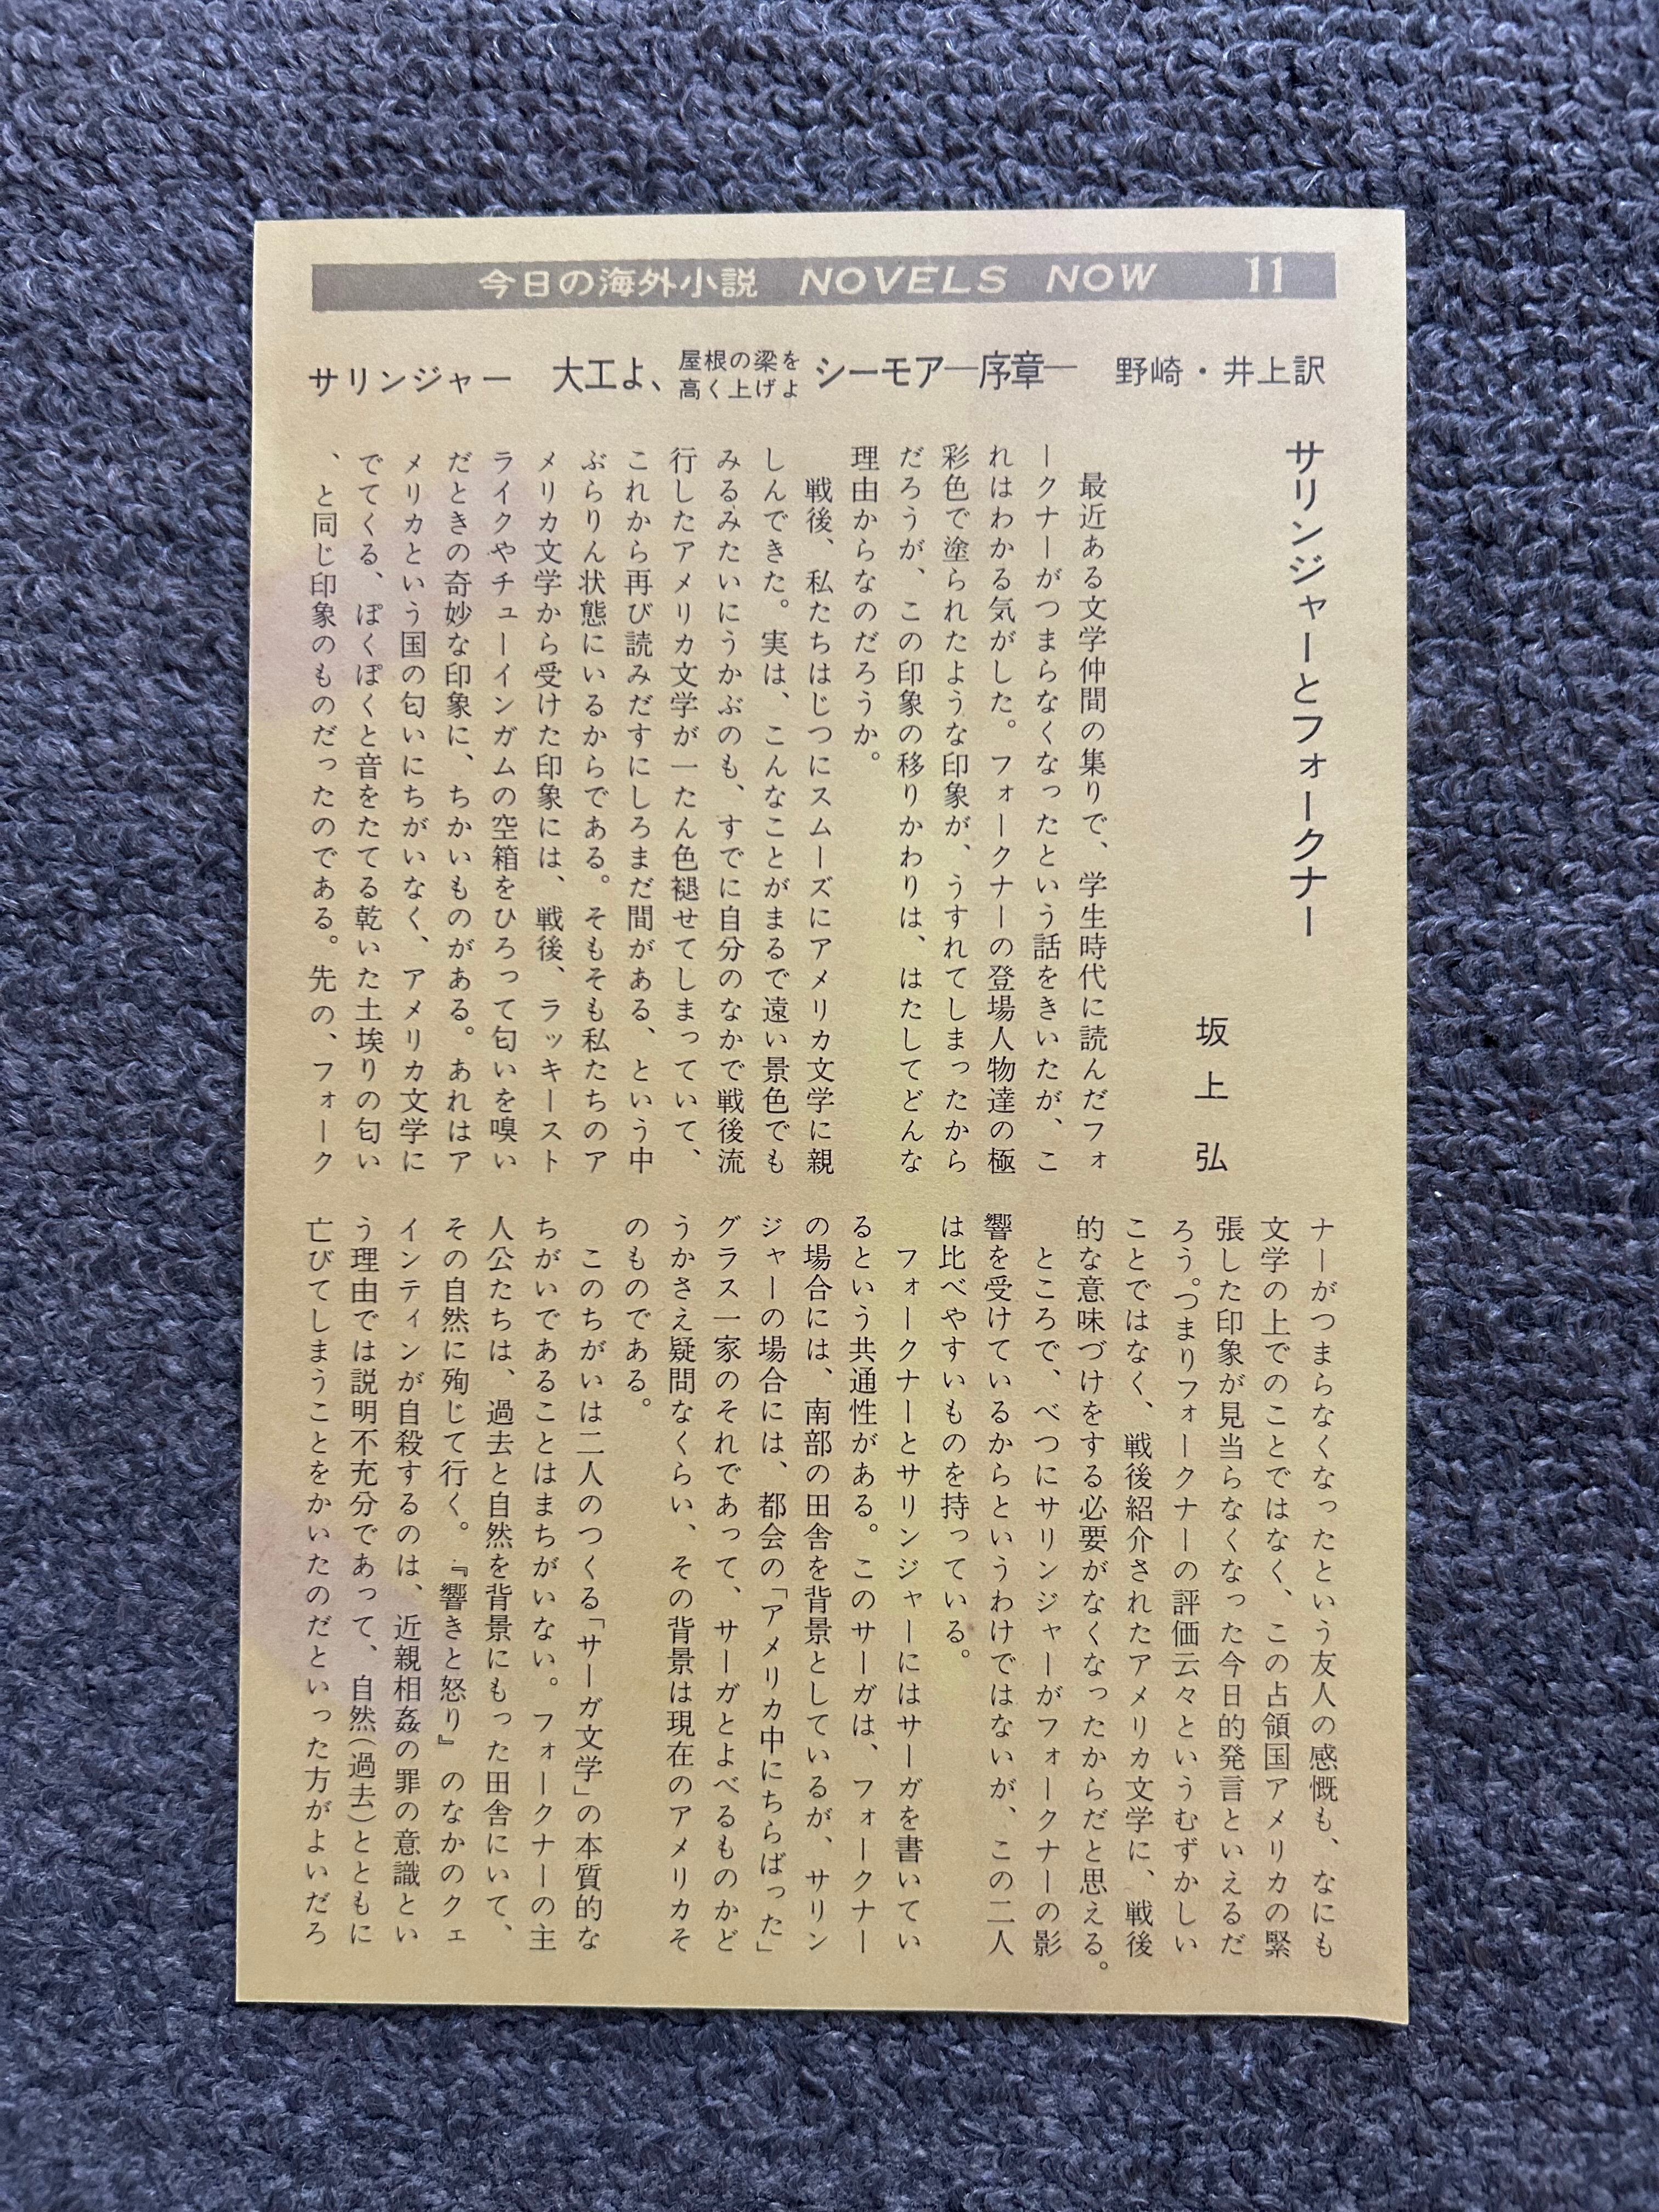 今日の海外小説 NOVELS NOW 11
サリンジャー 大工よ、屋根の梁を高く上げよ シーモア―序章― 野崎・井上訳
サリンジャーとフォークナー
坂上弘
最近ある文学仲間の集りで、学生時代に読んだフォ
ークナーがつまらなくなったという話をきいたが、こ
れはわかる気がした。フォークナーの登場人物達の極
彩色で塗られたような印象が、うすれてしまったから
だろうが、この印象の移りかわりは、はたしてどんな
理由からなのだろうか。
戦後、私たちはじつにスムーズにアメリカ文学に親
しんできた。実は、こんなことがまるで遠い景色でも
みるみたいにうかぶのも、すでに自分のなかで戦後流
行したアメリカ文学が一たん色褪せてしまっていて、
これから再び読みだすにしろまだ間がある、という中
ぶらりん状態にいるからである。そもそも私たちのア
メリカ文学から受けた印象には、戦後、ラッキースト
ライクやチューインガムの空箱をひろって匂いを嗅い
だときの奇妙な印象に、ちかいものがある。あれはア
メリカという国の匂いにちがいなく、アメリカ文学に
でてくる、ぽくぽくと音をたてる乾いた土埃りの匂い
、と同じ印象のものだったのである。先の、フォーク
ナーがつまらなくなったという友人の感慨も、なにも
文学の上でのことではなく、この占領国アメリカの緊
張した印象が見当らなくなった今日的発言といえるだ
ろう。つまりフォークナーの評価云々というむずかしい
ことではなく、戦後紹介されたアメリカ文学に、戦後
的な意味づけをする必要がなくなったからだと思える。
ところで、べつにサリンジャーがフォークナーの影
響を受けているからというわけではないが、この二人
は比べやすいものを持っている。
フォークナーとサリンジャーにはサーガを書いてい
るという共通性がある。このサーガは、フォークナー
の場合には、南部の田舎を背景としているが、サリン
ジャーの場合には、都会の「アメリカ中にちらばった」
グラス一家のそれであって、サーガとよべるものかど
うかさえ疑問なくらい、その背景は現在のアメリカそ
のものである。
このちがいは二人のつくる「サーガ文学」の本質的な
ちがいであることはまちがいない。フォークナーの主
人公たちは、過去と自然を背景にもった田舎にいて、
その自然に殉じて行く。『響きと怒り』のなかのクェ
インティンが自殺するのは、近親相姦の罪の意識とい
う理由では説明不充分であって、自然(過去)とともに
亡びてしまうことをかいたのだといった方がよいだろ